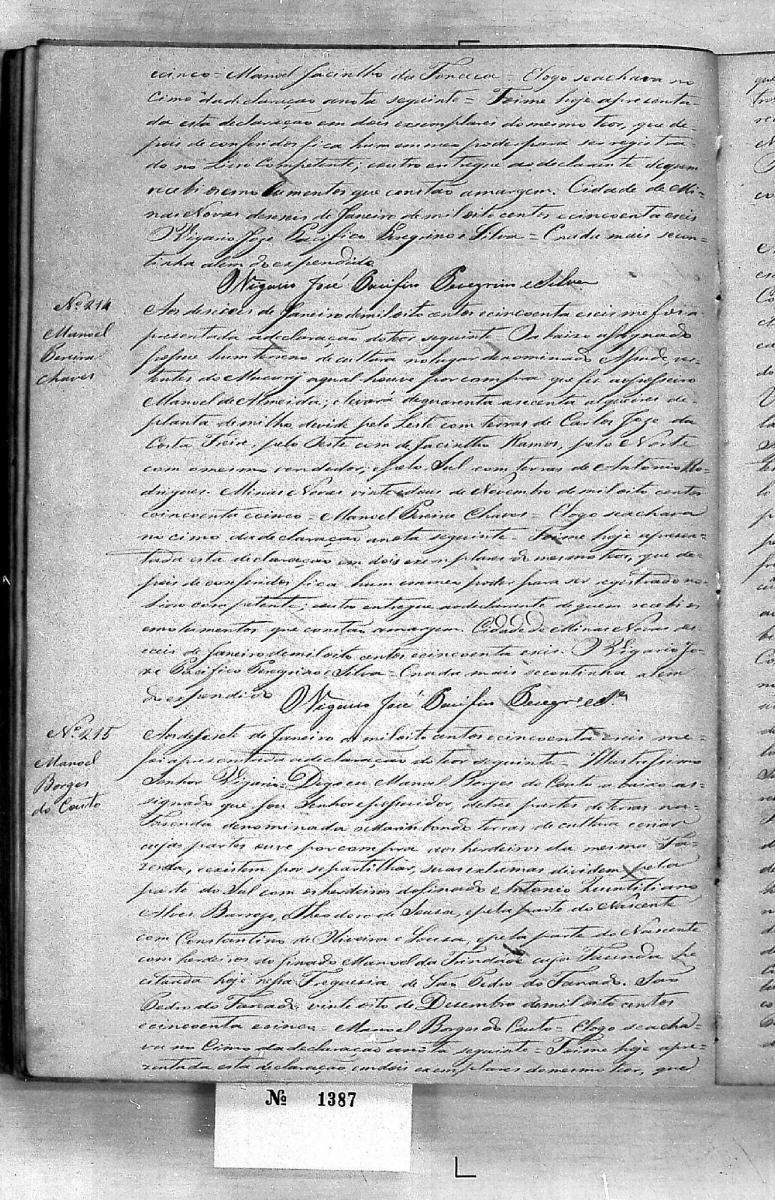 ecinco = Manoel Jacintho da Fonceca = E logo se achava no
cimo da declaração a nota seguinte = Foi me hoje apresenta-
da esta declaração em dois exemplares do mesmo teor, que de-
pois de conferidos fica hum em meu poder para ser registra-
do no Livro Competente; e outro entregue ao declarante de quem
recebi os emolumentos que constão amargem. Cidade de Mi-
nas Novas deseseis de Janeiro de mil oito centos e cincoenta e seis
O Vigario Joze Pacifico Peregrino e Silva = E nada mais se con-
tinha alem do expendido
O Vigario José Pacifico Peregrino e Silva
Nº 214
Manoel
Pereira
Chaves
Aos deseseis de Janeiro de mil oito centos e cincoenta e seis me foi a-
presentada a declaração do teor seguinte. O abaixo assignado
possue hum terreno de cultura no lugar denominado ver-
tentes do Mucury a qual houve por compra que fez ao
Manoel de Almeida; e levará de quarenta a secenta alqueires de
planta de milho devide pelo Leste com terras de Carlos Joze da
Costa Freire, pelo Oeste com de Jacintho Ramos, pelo Norte
com o mesmo vendedor, e pelo Sul com terras de Antonio Ro-
drigues. Minas Novas vinte e dois de Novembro de mil oito centos
e cincoenta e cinco = Manoel Pereira Chaves = E logo se achava
no cimo da declaração a nota seguinte = Foi me hoje apresen-
tada esta declaração em dois exemplares do mesmo teor, que de-
pois de conferidos fica hum em meu poder para ser registrado no
Livro competente; e outro entregue ao declarante de quem recebi os
emolumentos que constão amargem. Cidade de Minas Novas des-
eseis de Janeiro de mil oito centos e cincoenta e seis. O Vigario Jo-
ze Pacifico Peregrino e Silva = E nada mais se continha alem
do expendido O Vigario José Pacifico Peregro e Sª
Nº 215
Manoel
Borges
do Couto
Aos desesete de Janeiro de mil oito centos e cincoenta e seis me
foi apresentada a declaração do teor seguinte = Illustrissimo
Senhor Vigario = Digo eu Manoel Borges do Couto a baixo as-
signado que sou Senhor e possuidor, de tres partes de terras na
Fazenda denominada Marimbondo terras de cultura e criar
cujas partes ouve por compra aos herdeiros da mesma Fa-
zenda, e existem por se partilhar, suas extremas dividem pela
parte do Sul com os herdeiros do finado Antonio Quintiliano
Alves Barrozo, e Theodoro de Sousa, e pela parte do Nascente
com Constantino de Oliveira e Sousa, e pela parte do Nascente
com herdeiros do finado Manoel da Trindade cuja Fazenda he
citanda hoje nesta Freguesia de São Pedro do Fanado. São
Pedro do Fanado vinte oito de Desembro de mil oito centos
e cincoenta e cinco = Manoel Borges do Couto = E logo se acha-
va no Cimo da declaração a nota seguinte = Foi me hoje apre-
zentada esta declaração em dois exemplares do mesmo teor, que
Nº 1387